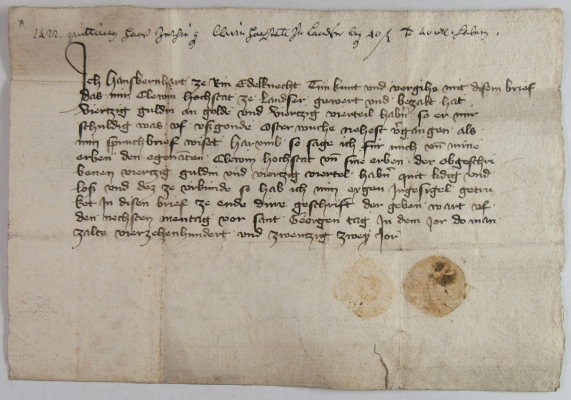 1422
Ich Hansbernhart ze Rin Edelknecht Tůn kunt und vergihe mit disem brief
das mir Clewin Hochstat ze Landser gewert und bezalt hat
Viertzig guldin an golde und viertzig vierteil habern so er mir
schuldig was uf usgonde Oster wuche nehest vergangen als
min spruchbrief wiset harumb so sage ich für mich und mine
erben den egenanten Clewin Hochstat und sine erben der obgeschri
benen viertzig guldin und viertzig viertel habern quit lidig und
loß und dez ze urkunde so hab ich min eygen Ingesigel getru
ket In disen brief ze ende dirre geschrift der geben wart uf
den nechsten mentag vor sant Georgen tag In dem Jor do man
zalte vierzehenhundert und zwentzig zwey Jor